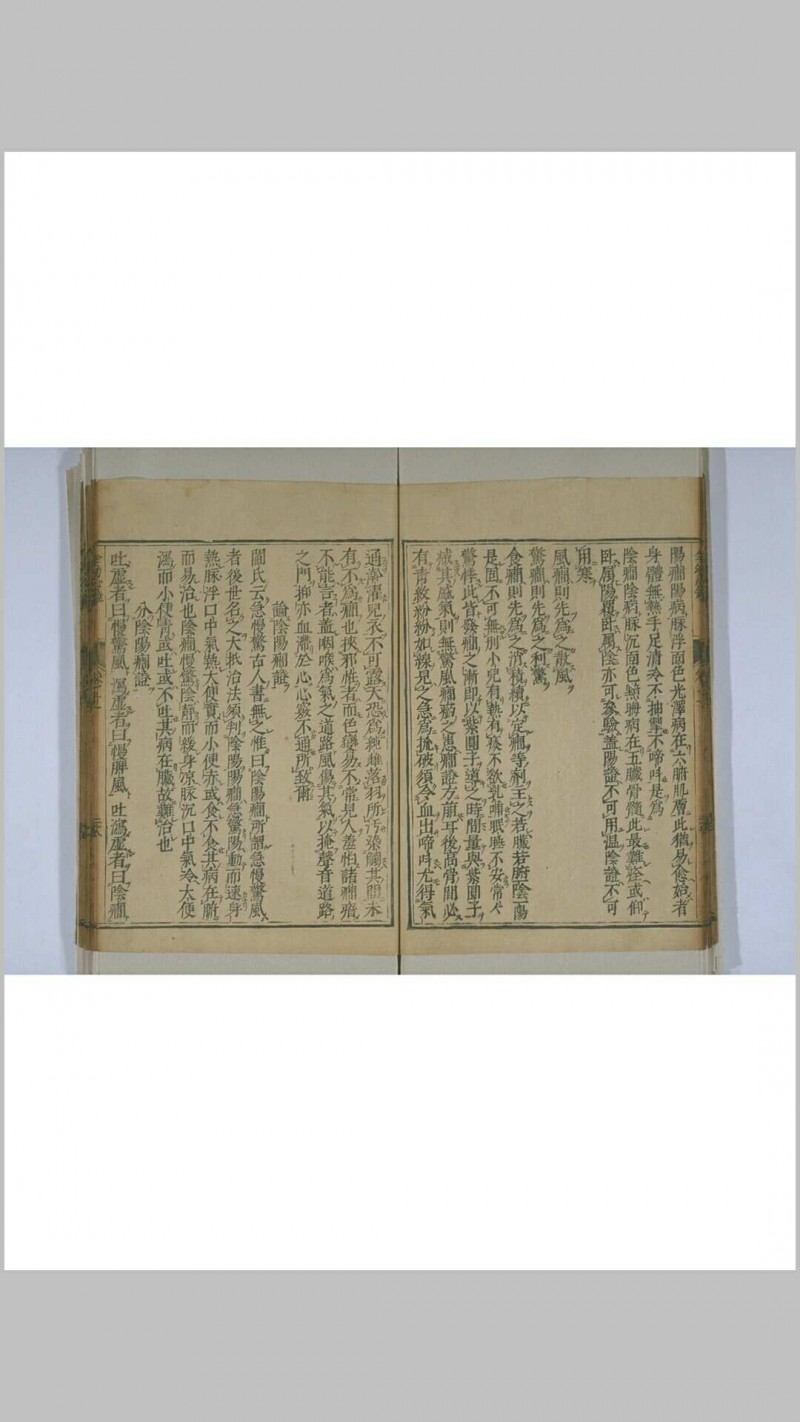 陽癇陽病脉浮面色光澤病在六腑肌膚此猶易愈始者
身體無熱手足清冷不抽掣不啼呌是爲
陰癇陰病脉沉面色黯晦病在五臟骨髓此最難痊或仰
卧屬陽覆卧屬陰亦可參驗蓋陽證不可用温陰證不可
用寒
風癇則先爲之散風
驚癇則先爲之利驚
食癇則先爲之消積續以定癇等劑主之若臟若腑陰陽
是固不可無別小兒有熱有痰不欲乳哺眠睡不安常々
驚悸此皆發癇之漸即以紫圓子導之時間量與紫圓子
减其盛氣則無驚風癇癎之患癇證方萠耳後高骨間必
有青紋紛紛如線見之急爲抓破須令血出啼呌尤得氣
通浣濯兒衣不可露天恐爲雌雄落羽所汚染觸其間未
有不爲癇也挾邪怪者面色變易不常見人羞怕諸癇瘖
不能言者蓋咽喉爲氣之道路風傷其氣以掩聲音道路
之門抑亦血滯於心心竅不通所致爾
論陰陽癇證
閻氏云急慢驚古人書無之惟曰陰陽癇所謂急慢驚風
者後世名之大抵治法須判陰陽陽癇急驚陽動而速身
熱脉浮口中氣熱大便實而小便赤或食不食其病在腑
而易治也陰癇慢驚陰静而緩身凉脉沉口中氣冷大便
瀉而小便青或吐或不吐其病在臟故難治也
分陰陽癇證
吐虚者曰慢驚風 瀉虚者曰慢脾風 吐瀉虚者曰陰癇